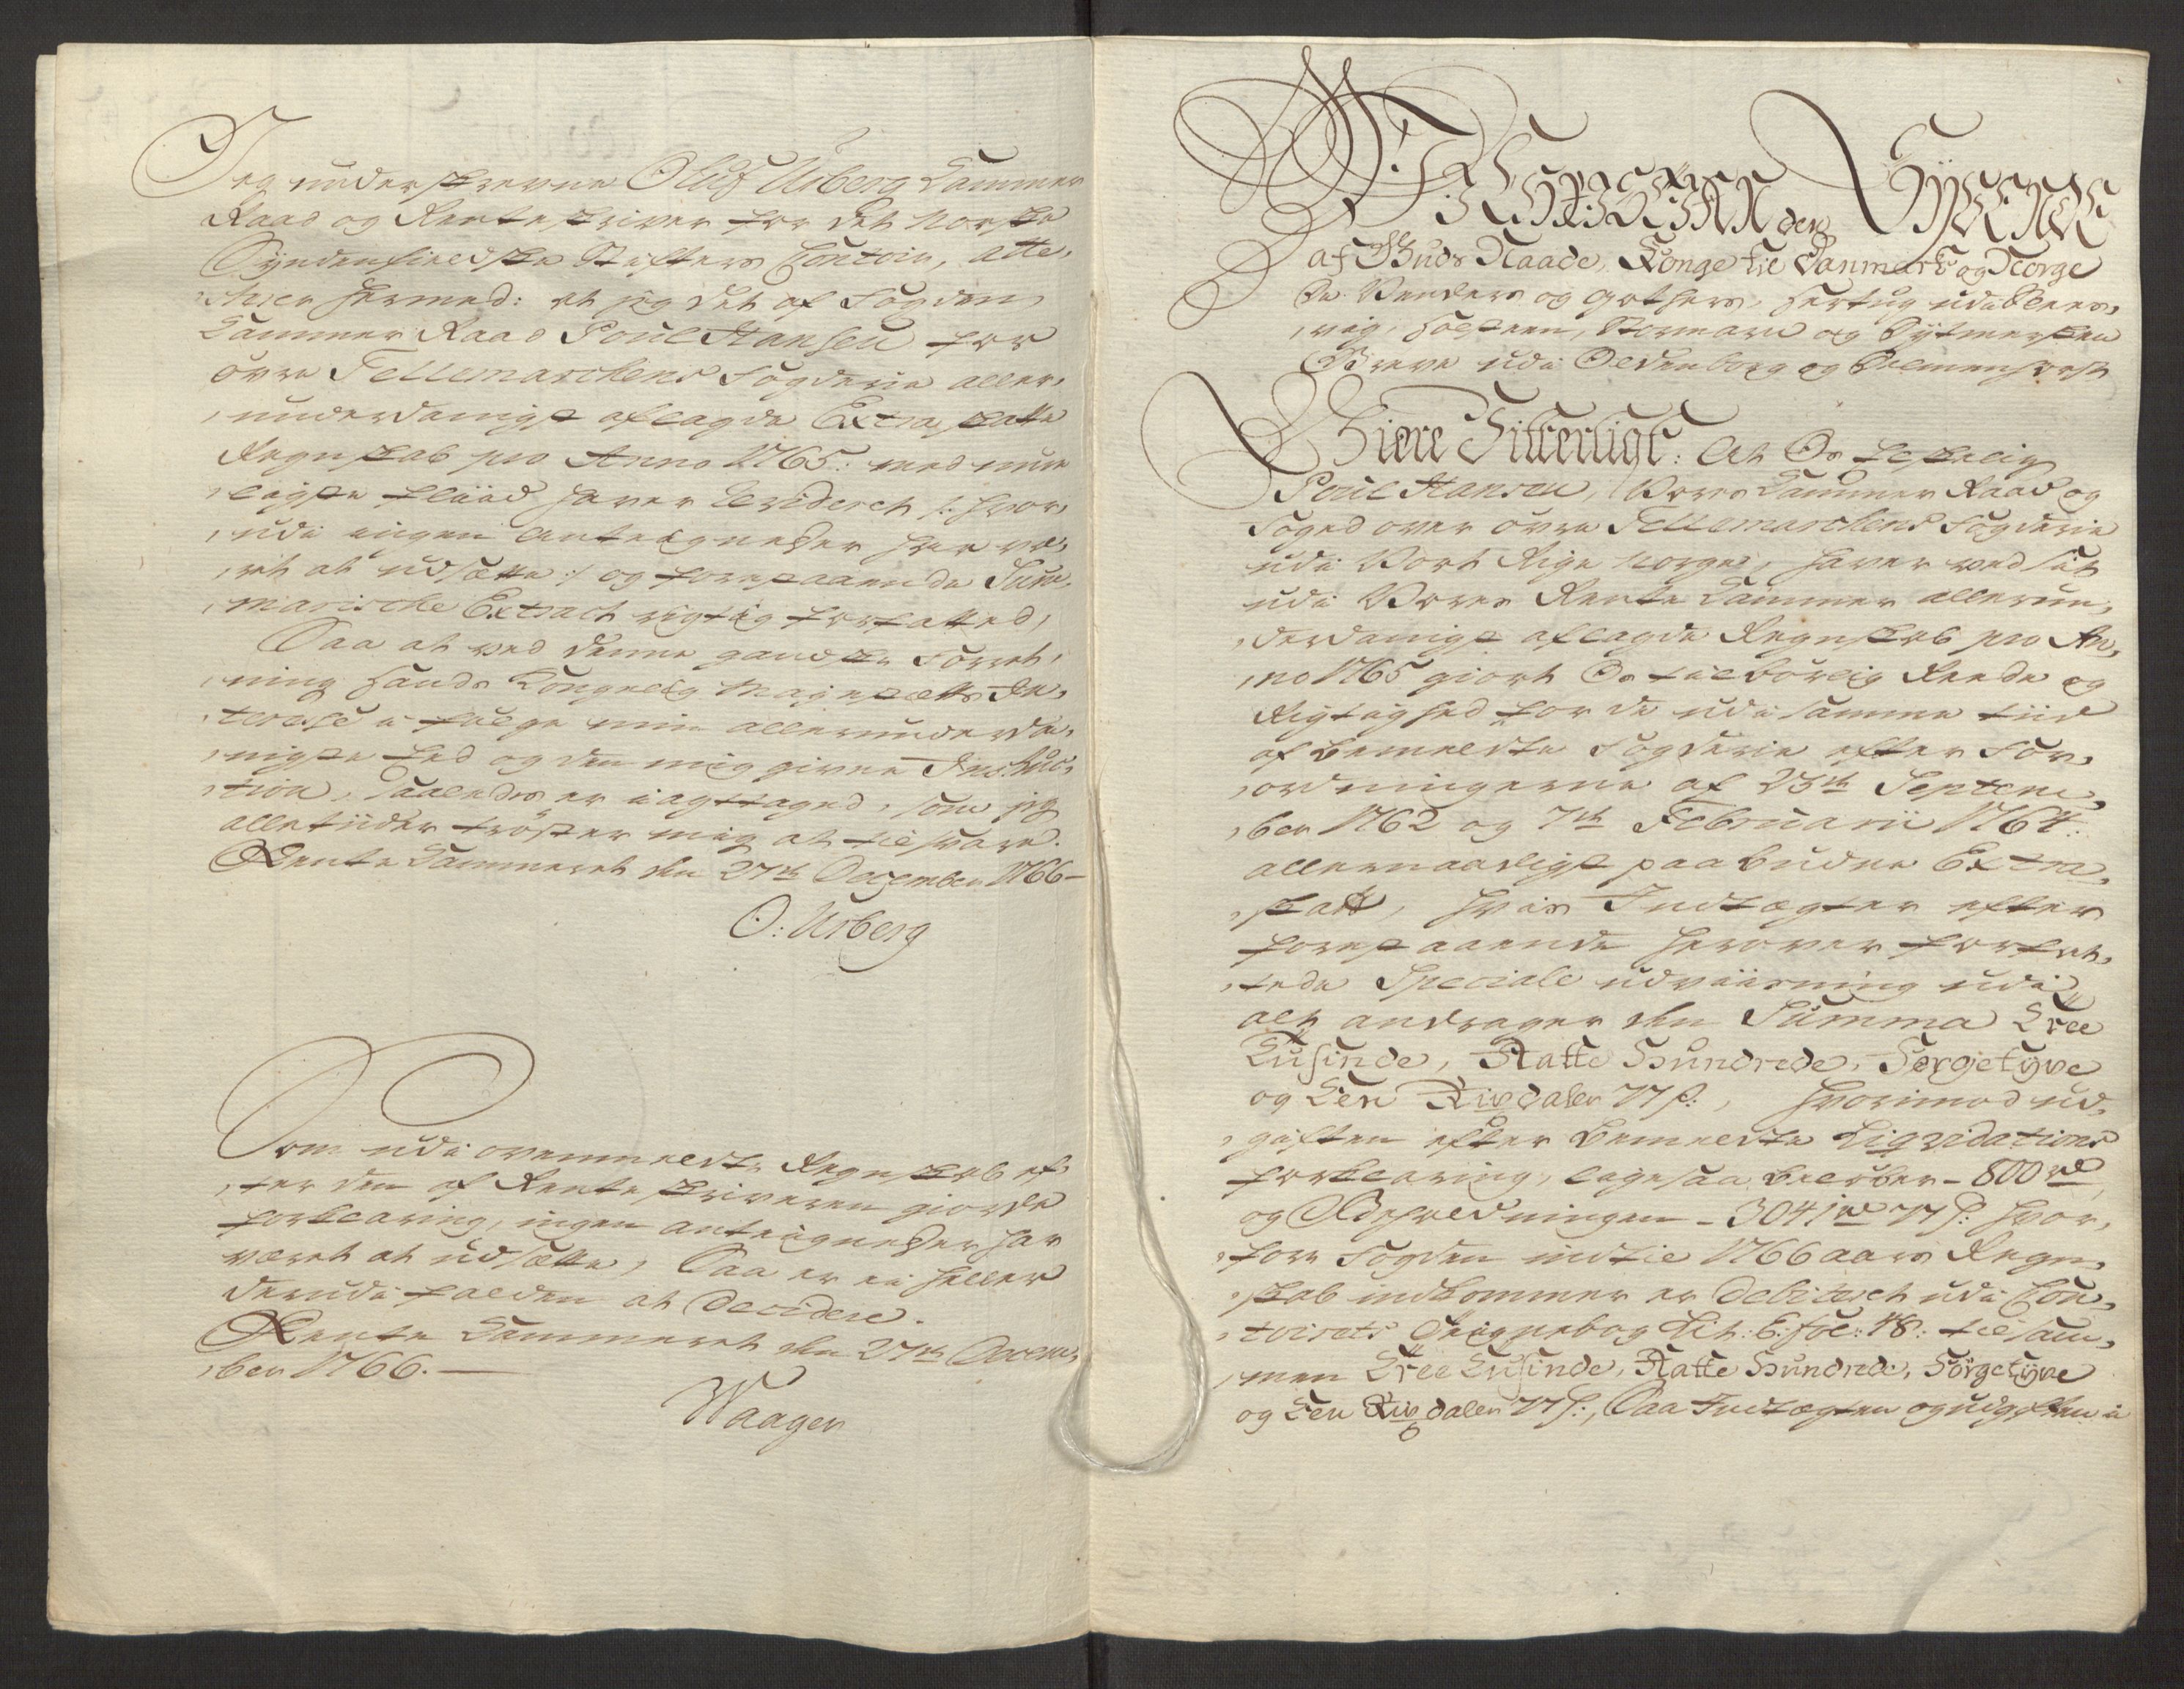 Jeg underskrevne Oluf Urberg Cammer
Raad og Renteskriver for det Norske
Syndenfieldske Stifters Contoir, atte,
,sterer hermed: at jeg det af Fogden,
Cammer Raad Poul Hansen for
øvre Tellemarckens Fogderie aller,
,underdanigst aflagde Extraskatte
Regnskab pro Anno 1765: med mue
,ligste fliid haver Revideret /: hvor,
,udi ingen Antegnelser har væ,
,ret at udsætte :/ og forestaaende Sum,
,mariske Extract rigtig forfatted,
Saa at ved denne gandske Forret,
,ning Hands Kongelig Mayestæts In,
,teresse i følge min allerunderda,
,nigste Eed og den mig givne Instruc,
,tion, saaledes er iagttaged, som jeg
alletiider trøster mig at tilsvare.
Rente Cammeret den 27de December 1766-
O: Urberg
Som udi ovenmeldte Regnskab ef,
,ter den af Renteskriveren giorde
forklaring, ingen antegnelser har
været at udsætte, Saa er ei heller
derudi falden at Decidere.
Rente Cammeret den 27de Decem,
,ber 1766.-
Waager
CHRISTIAN den SYVENDE
af Guds Naade, Konge til Danmark og Norge
De Venders og Gothers, Hertug udi Sles,
,vig, Holsteen, Stormarn og Dytmersken
Greve udi Oldenborg og Delmenhorst
Giøre Vitterligt: At Os Elskelig
Poul Hansen, Vores Cammer Raad og
Foged over øvre Tellemarckens Fogderie
udi Vort Rige Norge, haver ved sit
udi Vores Rente Cammer allerun,
,derdanigst aflagde Regnskab pro An,
,no 1765 giort Os tilbørlig Reede og
Rigtighed for de udi samme tiid
af bemeldte Fogderie efter For,
,ordningerne af 23de Septem,
,ber 1762 og 7de Februarii 1764:
allernaadigst paabudne Extra,
,skatt, hvis Indtægter efter
forestaaende herover forfat,
,tede Speciale udviisning udi
alt andrager den Summa Tree
Tusinde, Aatte Hundrede, Førgetyve
og Een Rixdaler 77 s:, hvorimod ud,
,giften efter bemeldte Liqvidations
forklaring, ligesaa beløber - 800 rd
og Beholdningen - 3041 rd 77 s: hvor,
,fore Fogden indtil 1766 aars Regn,
,skab indkommer er Debiteret udi Con,
,toirets Bog Lit: E: fol: 48: tilsam,
,men Tree Tusinde, Aatte Hundrede, Førgetyve
og Een Rixdaler 77 s:, Saa Indtægten og udgiften i